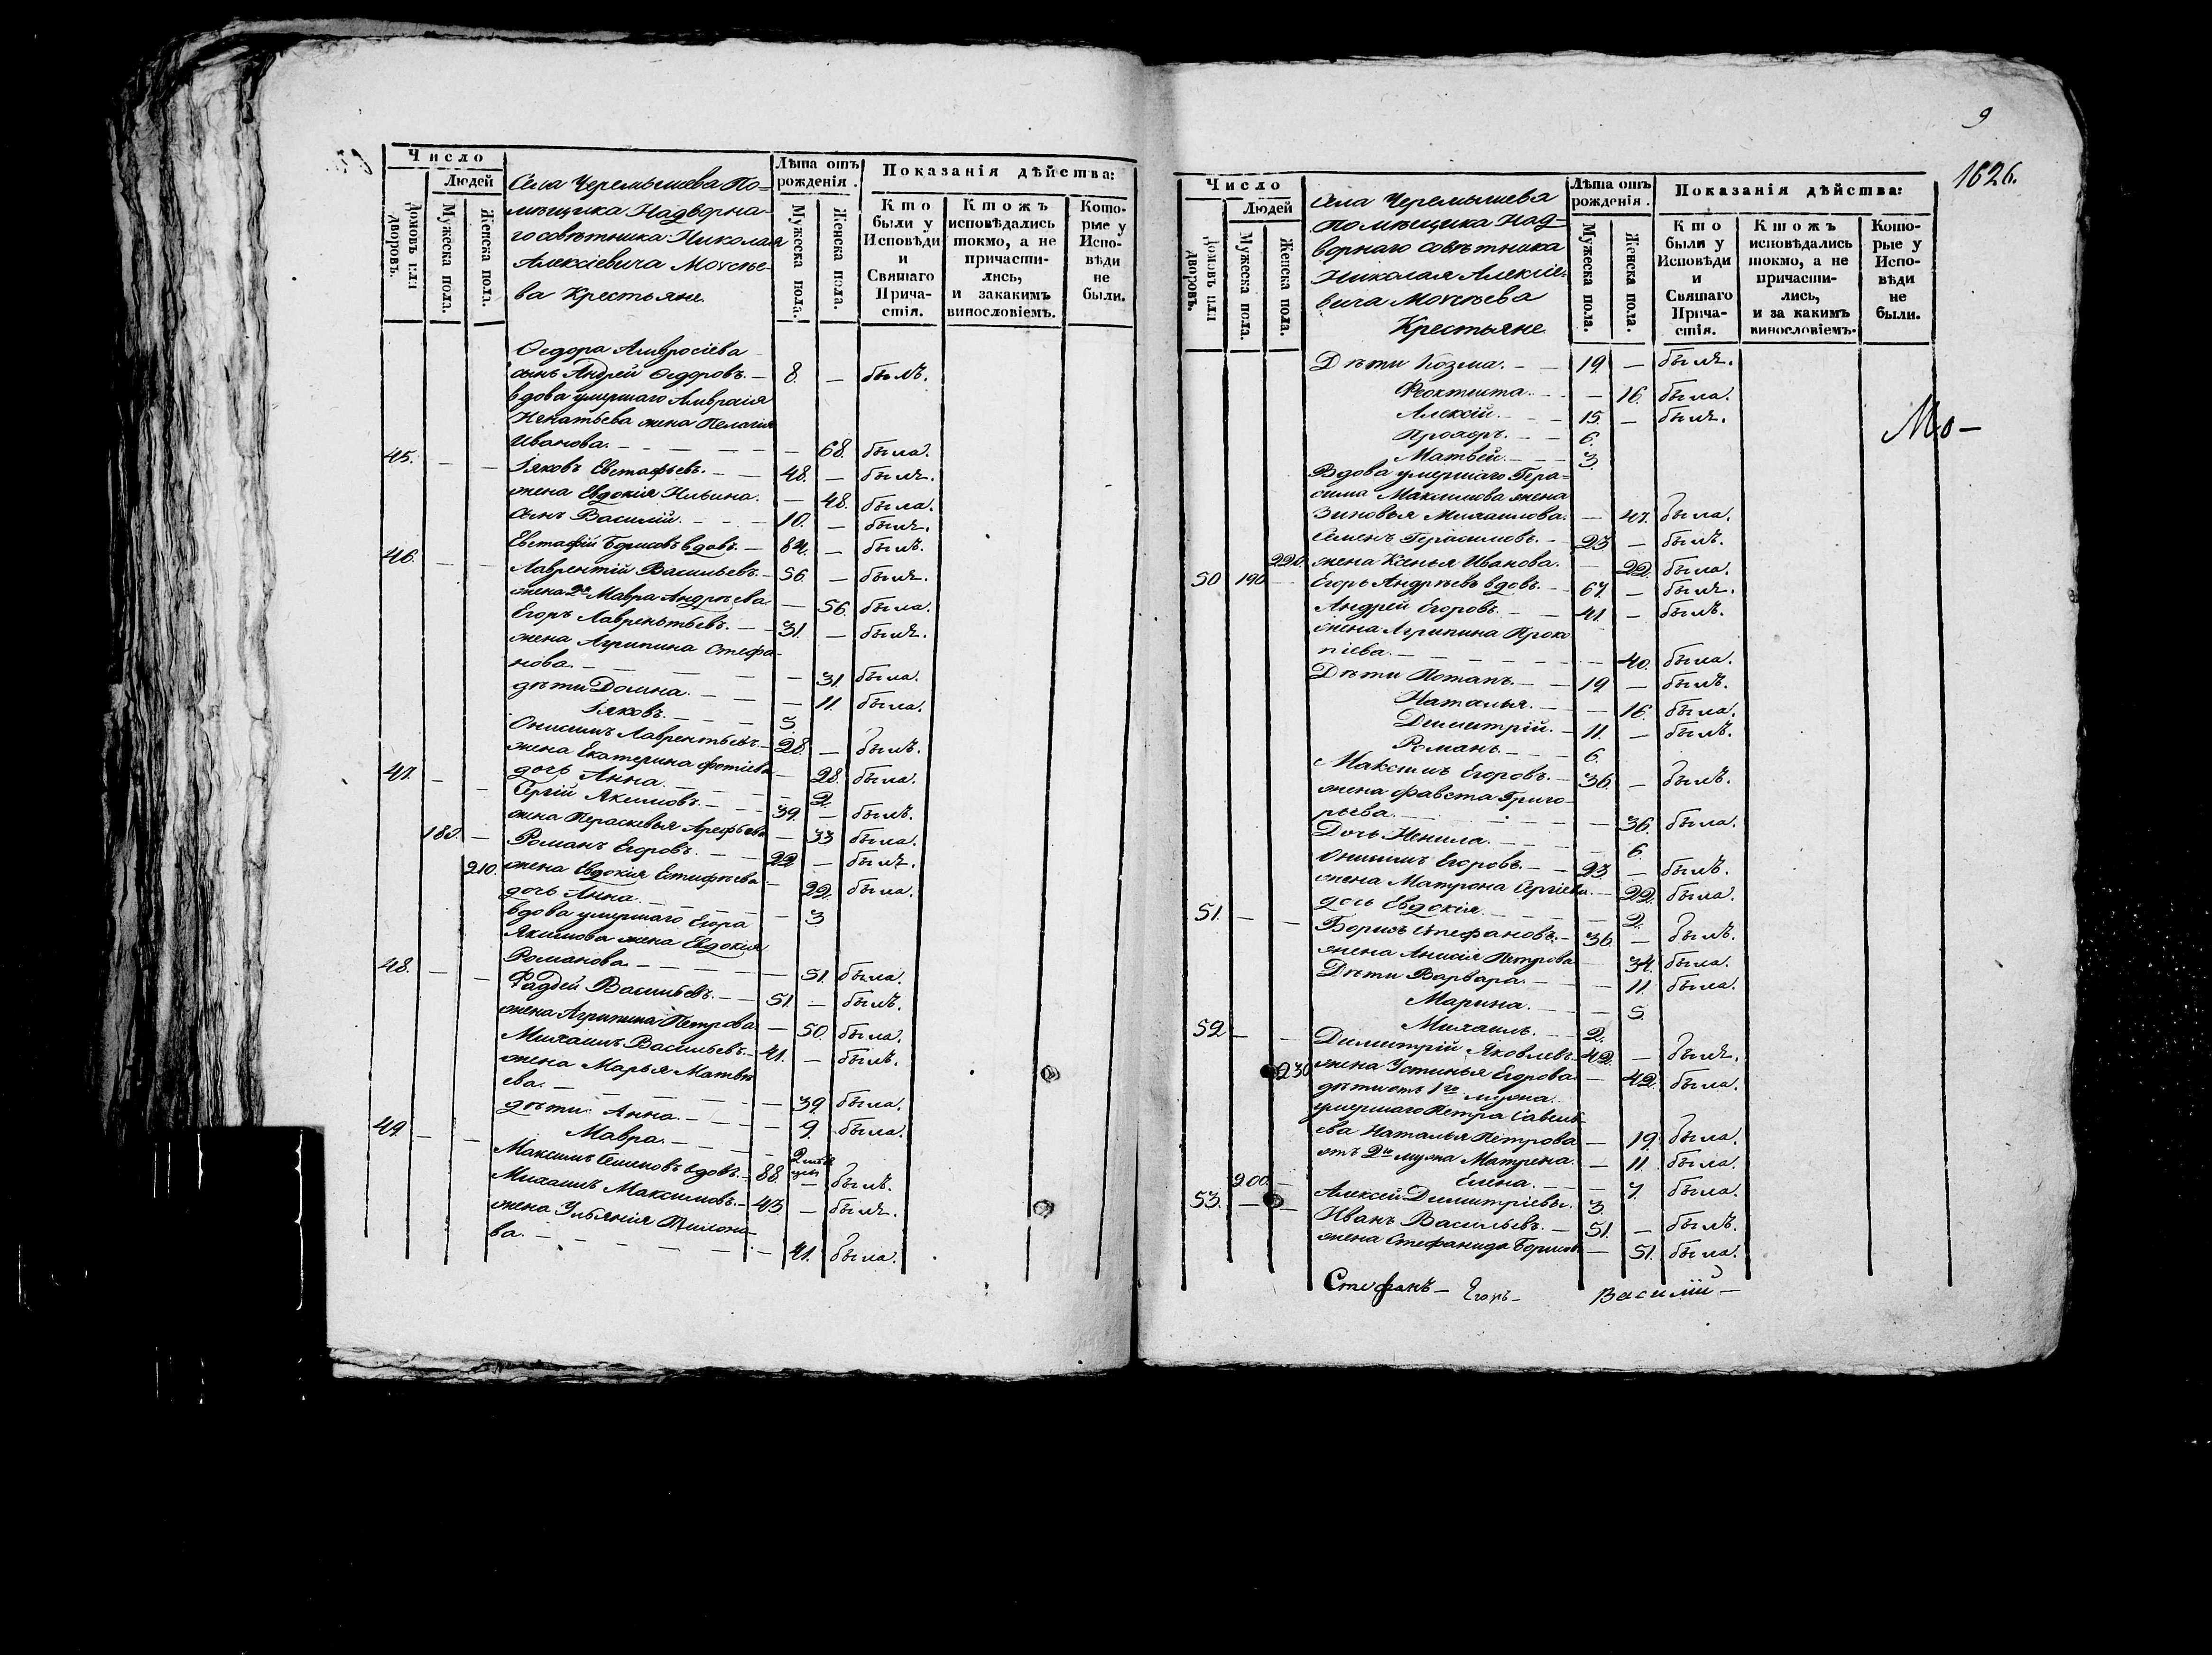 Число
Людей
Домовъ или дворовъ.
Мужеска пола.
Женска пола.
Села Черемышева По-
мѣщика Надворна-
го совѣтника Николая
Алексіевича Мосѣе-
ва Крестьяне.
Лѣта отъ рожденія.
Мужеска пола.
Женска пола.
Показанія дѣйства:
Кто были у Исповѣди и Святаго Прича-стія.
Ктожъ исповѣдались токмо, а не причасти-лись, и закакимъ винословіемъ.
Кото-рые у Испо-вѣди не были.
Ѳедора Амвросіева
сынъ Андрей Ѳедоровъ. — 8. — былъ.
вдова умершаго Амвросія
Игнатьева жена Пелагія
Иванова. — — 68. была.
45. — — Іяковъ Евстафьевъ. — 48. — былъ.
жена Евдокія Ильина. — 48. была.
сынъ Василій. — 10. — былъ.
Евстафій Борисовъ вдовъ. — 84. — былъ.
46. — — Лаврентій Васильевъ. — 56. — былъ.
жена 2я Мавра Андрѣева — 56. была.
Егоръ Лаврентьевъ. — 31. — былъ.
жена Агрипина Стефа-
нова. — — 31. была.
дѣти Домна. — — 11. была.
Іяковъ. — 5.
Онисимъ Лаврентьевъ. — 28. — былъ.
жена Екатерина Фотіева — 28. была.
дочь Анна. — — 2.
47. — — Сергій Якимовъ. — 39. — былъ.
жена Параскевья Арефьева — 33 была.
180. — Романъ Егоровъ. — 22 — былъ.
210. жена Евдокія Естифѣева — 22. была.
дочь Анна. — — 3
вдова умершаго Егора
Якимова жена Евдокія
Романова. — — 51. была.
48. — — Фаддей Васильевъ. — 51. — былъ.
жена Агрипина Петрова — 50. была.
Михаилъ Васильевъ. — 41. — былъ.
жена Марья Матвѣ
ева. — — 39. была.
дѣти Анна. — — 9. была.
Мавра. — — 2
49. — — Максимъ Семеновъ вдовъ. — 88. — былъ.
Михаилъ Максимовъ. — 43. — былъ.
жена Ульянія Филипо-
ва. — — 41. была.
9
1626.
Число
Людей
Домовъ или дворовъ.
Мужеска пола.
Женска пола.
Села Черемышева
Помѣщика Над-
ворнаго совѣтника
Николая Алексіе-
вича Мосѣева
Крестьяне
Лѣта отъ рожденія.
Мужеска пола.
Женска пола.
Показанія дѣйства:
Кто были у Исповѣди и Святаго Прича-стія.
Ктожъ исповѣдались токмо, а не причасти-лись, и за какимъ винословіемъ.
Кото-рые у Испо-вѣди не были.
Дѣти Козма. — 19. — былъ.
Феоктиста. — — 16. была.
Алексій. — 15. — былъ.
Мо-
Прохоръ. — 6.
Матвей. — 3.
Вдова умершаго Гера-
сима Максимова жена
Зиновья Михаилова. — 47. была.
Семенъ Герасимовъ. — 23 — былъ.
220. жена Ксенья Иванова. — 22. была.
50 190 — Егоръ Андрѣевъ вдовъ. — 67. — былъ.
Андрей Егоровъ. — 41. — былъ.
жена Агрипина Проко
піева. — — 40. была.
Дѣти Потапъ. — 19. — былъ.
Наталья. — — 16. была.
Димитрій. — 11. — былъ.
Романъ. — 6.
Максимъ Егоровъ. — 36. — былъ.
жена Фавста Григо-
рьева. — — 36. была.
Дочь Ненила. — — 6.
Онисимъ Егоровъ. — 23. — былъ.
жена Матрона Сергіева. — 22. была.
дочь Евдокія. — — 2.
51. — — Борисъ Стефановъ. — 36. — былъ.
жена Анисія Петрова 34. была.
Дѣти Варвара. — — 11. была.
Марина. — — 5.
Михаилъ. — 2.
52 — — Димитрій Яковлевъ. — 42. — былъ.
230 жена Устинья Егорова. — 42. была.
дѣти отъ 1го мужа
умершаго Петра Савель-
ева Наталья Петрова — 19. была.
отъ 2го мужа Матрена. — 11. была.
Елена. — — 7. была.
200. — Алексей Димитріевъ. 3.
53. — — Иванъ Васильевъ. — 51. — былъ.
жена Стефанида Борисов — 51. была.
Стефанъ — Егоръ — Василій —